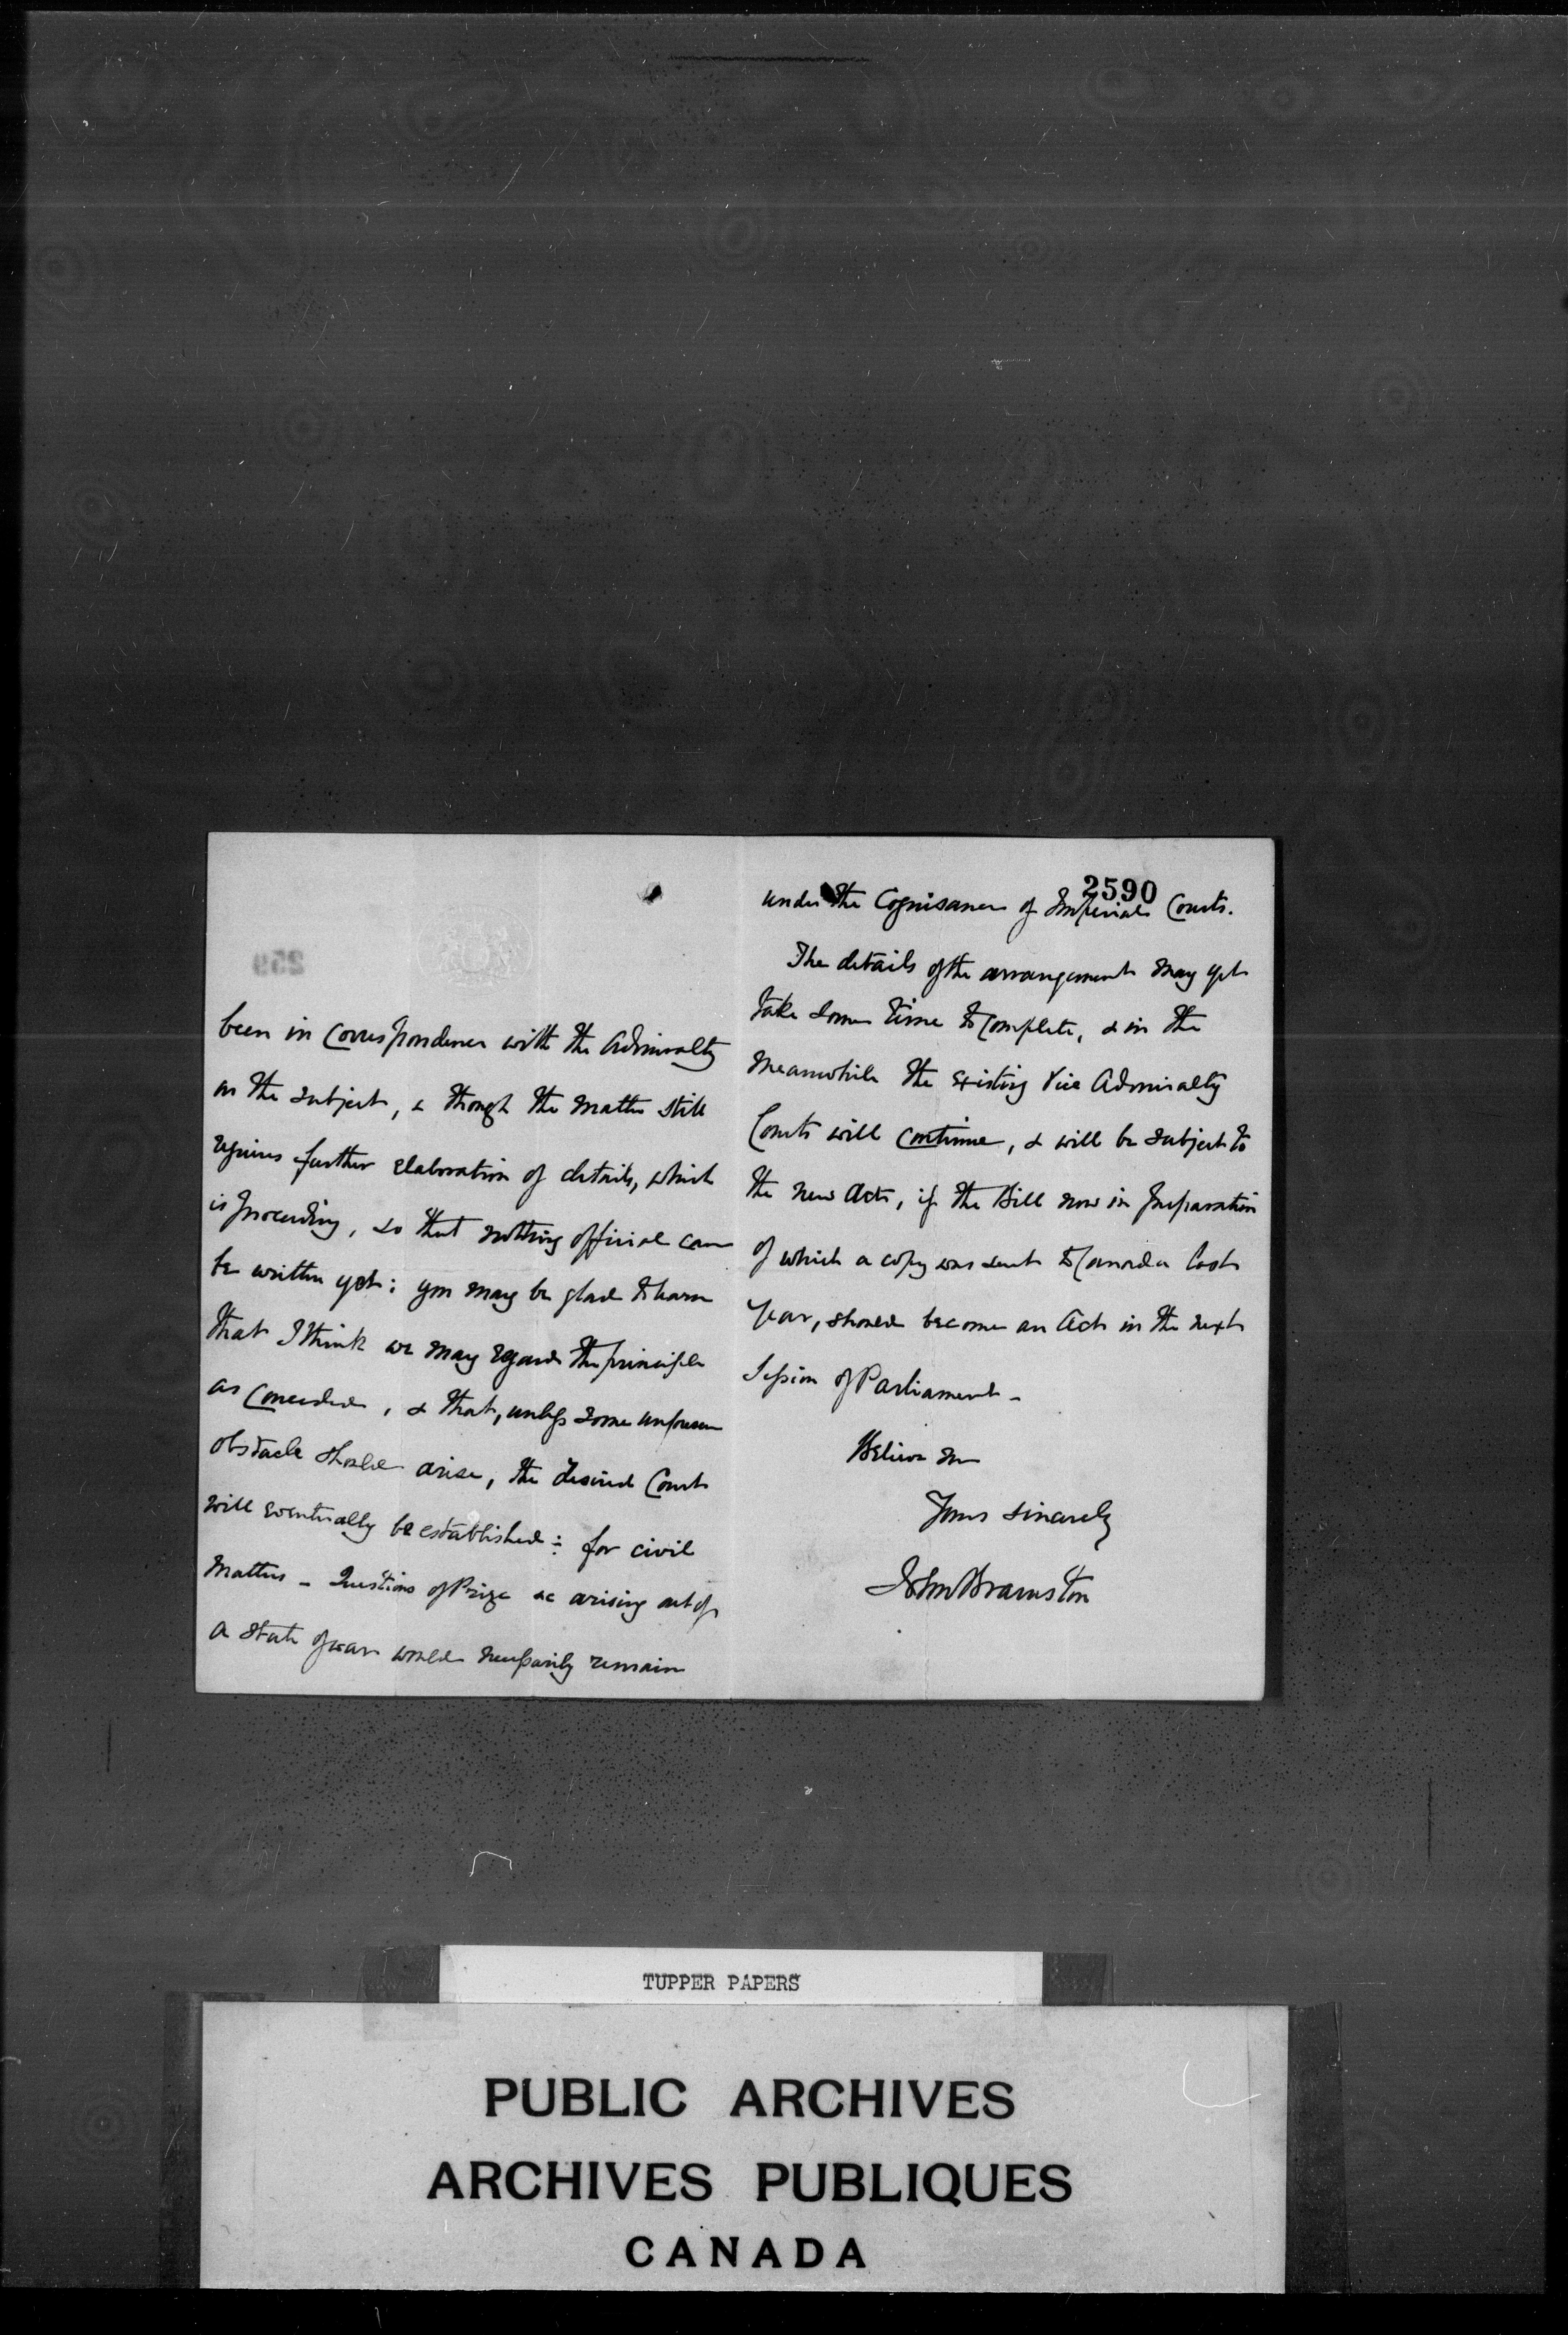 been in correspondence with the Admiralty
on the subject, & though the matter still
requires further elaboration of details, which
is proceeding, so that nothing official can
be written yet: you may be glad to learn
that I think we may regard the principle
as conceded, & that, unless some unforeseen
obstacle should arise, the desired Court
will eventually be established: for civil
matters - Questions of Prize &c arising out of
a state of war would necessarily remain
2590
under the Cognisance of Imperial Courts.
The details of the arrangement may yet
take some time to complete, & in the
meanwhile the existing Vice Admiralty
Courts will continue, & will be subject to
the new Act, if the Bill now in preparation
of which a copy was sent to Canada last
year, should become an Act in the next
Session of Parliament -
Believe me
Yours sincerely
John Bramston
TUPPER PAPERS
PUBLIC ARCHIVES
ARCHIVES PUBLIQUES
CANADA